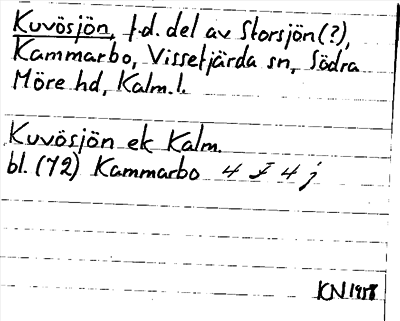 Kuvösjön, f.d. del av Storsjön(?),
Kammarbo, Vissefjärda sn, Södra
Möre hd, Kalm. l.
Kuvösjön ek Kalm.
bl. (72) Kammarbo 4 F 4 j
KN 1958